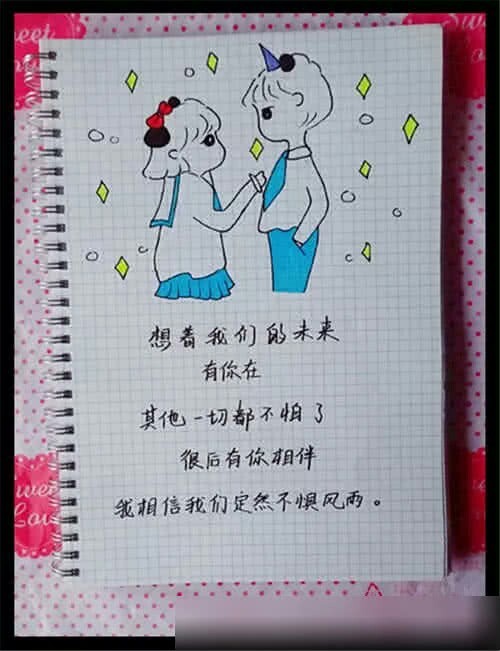 Sweet
Love
Sweet
想着我们的未来
有你在
其他一切都不怕了
很后有你相伴
我相信我们定然不惧风雨。
Sweet
Love
Sweet
Love